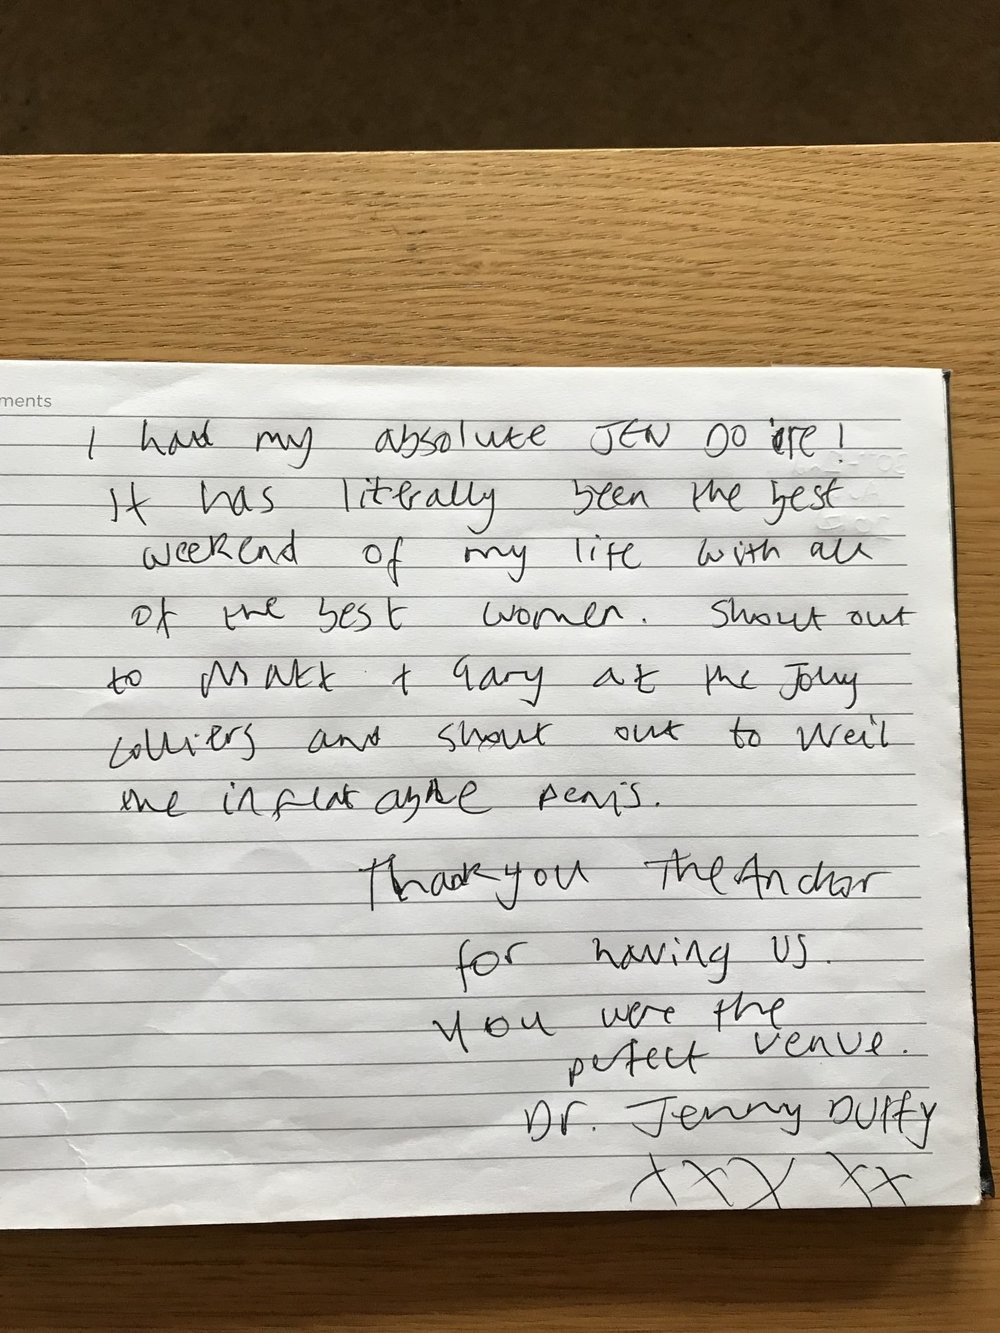 ments
I had my absolute JEN DO ere!
It has literally been the best
weekend of my life with all
of the best women. Shout out
to Matt + Gary at the Jolly
colliers and shout out to Neil
the inflatable penis.
Thankyou The Anchor
for having us.
You were the
perfect venue.
Dr. Jenny Duffy
xxx xx